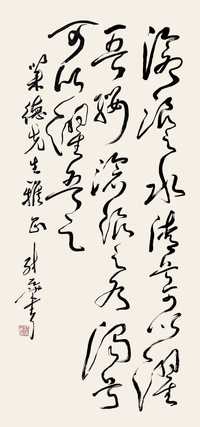 滄浪之水清兮可以濯
吾纓滄浪之水濁兮
可以濯吾足
德先生雅正
書